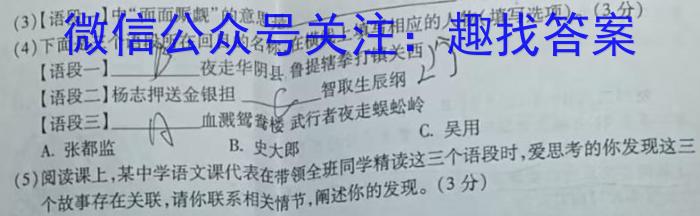 (3)【语段一】中“面面厮觑”的意思是 (3分)
微信公众号关注：趣找答案
(4)下面 回 的名称,在横线上填写相应的人 (填写选项)。(3分)
【语段一】 B 夜走华阴县 鲁提辖拳打镇关西
【语段二】杨志押送金银担 C 智取生辰纲
【语段三】 A 血溅鸳鸯楼 武行者夜走蜈蚣岭
A. 张都监 B. 史大郎 C. 吴用
(5)阅读课上,某中学语文课代表在带领全班同学精读这三个语段时,爱思考的你发现这三
个故事存在关联,请你联系相关情节,阐述你的发现。(3分)